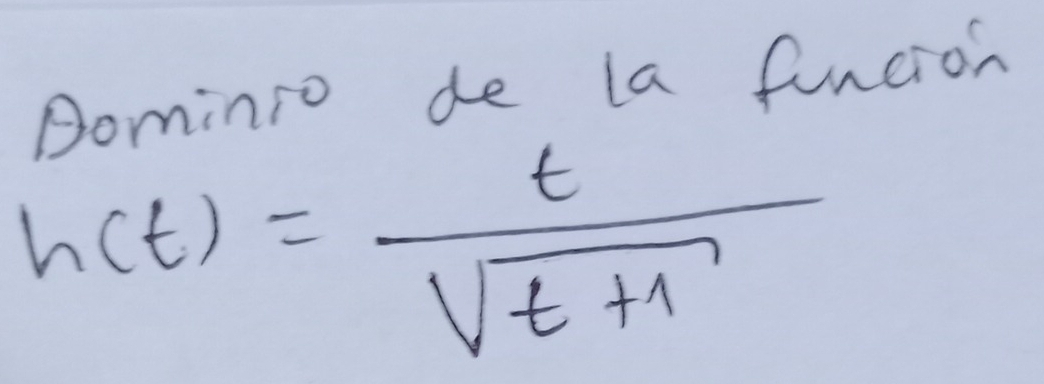 Dominio de la función
h(t) = t / √(t+1)